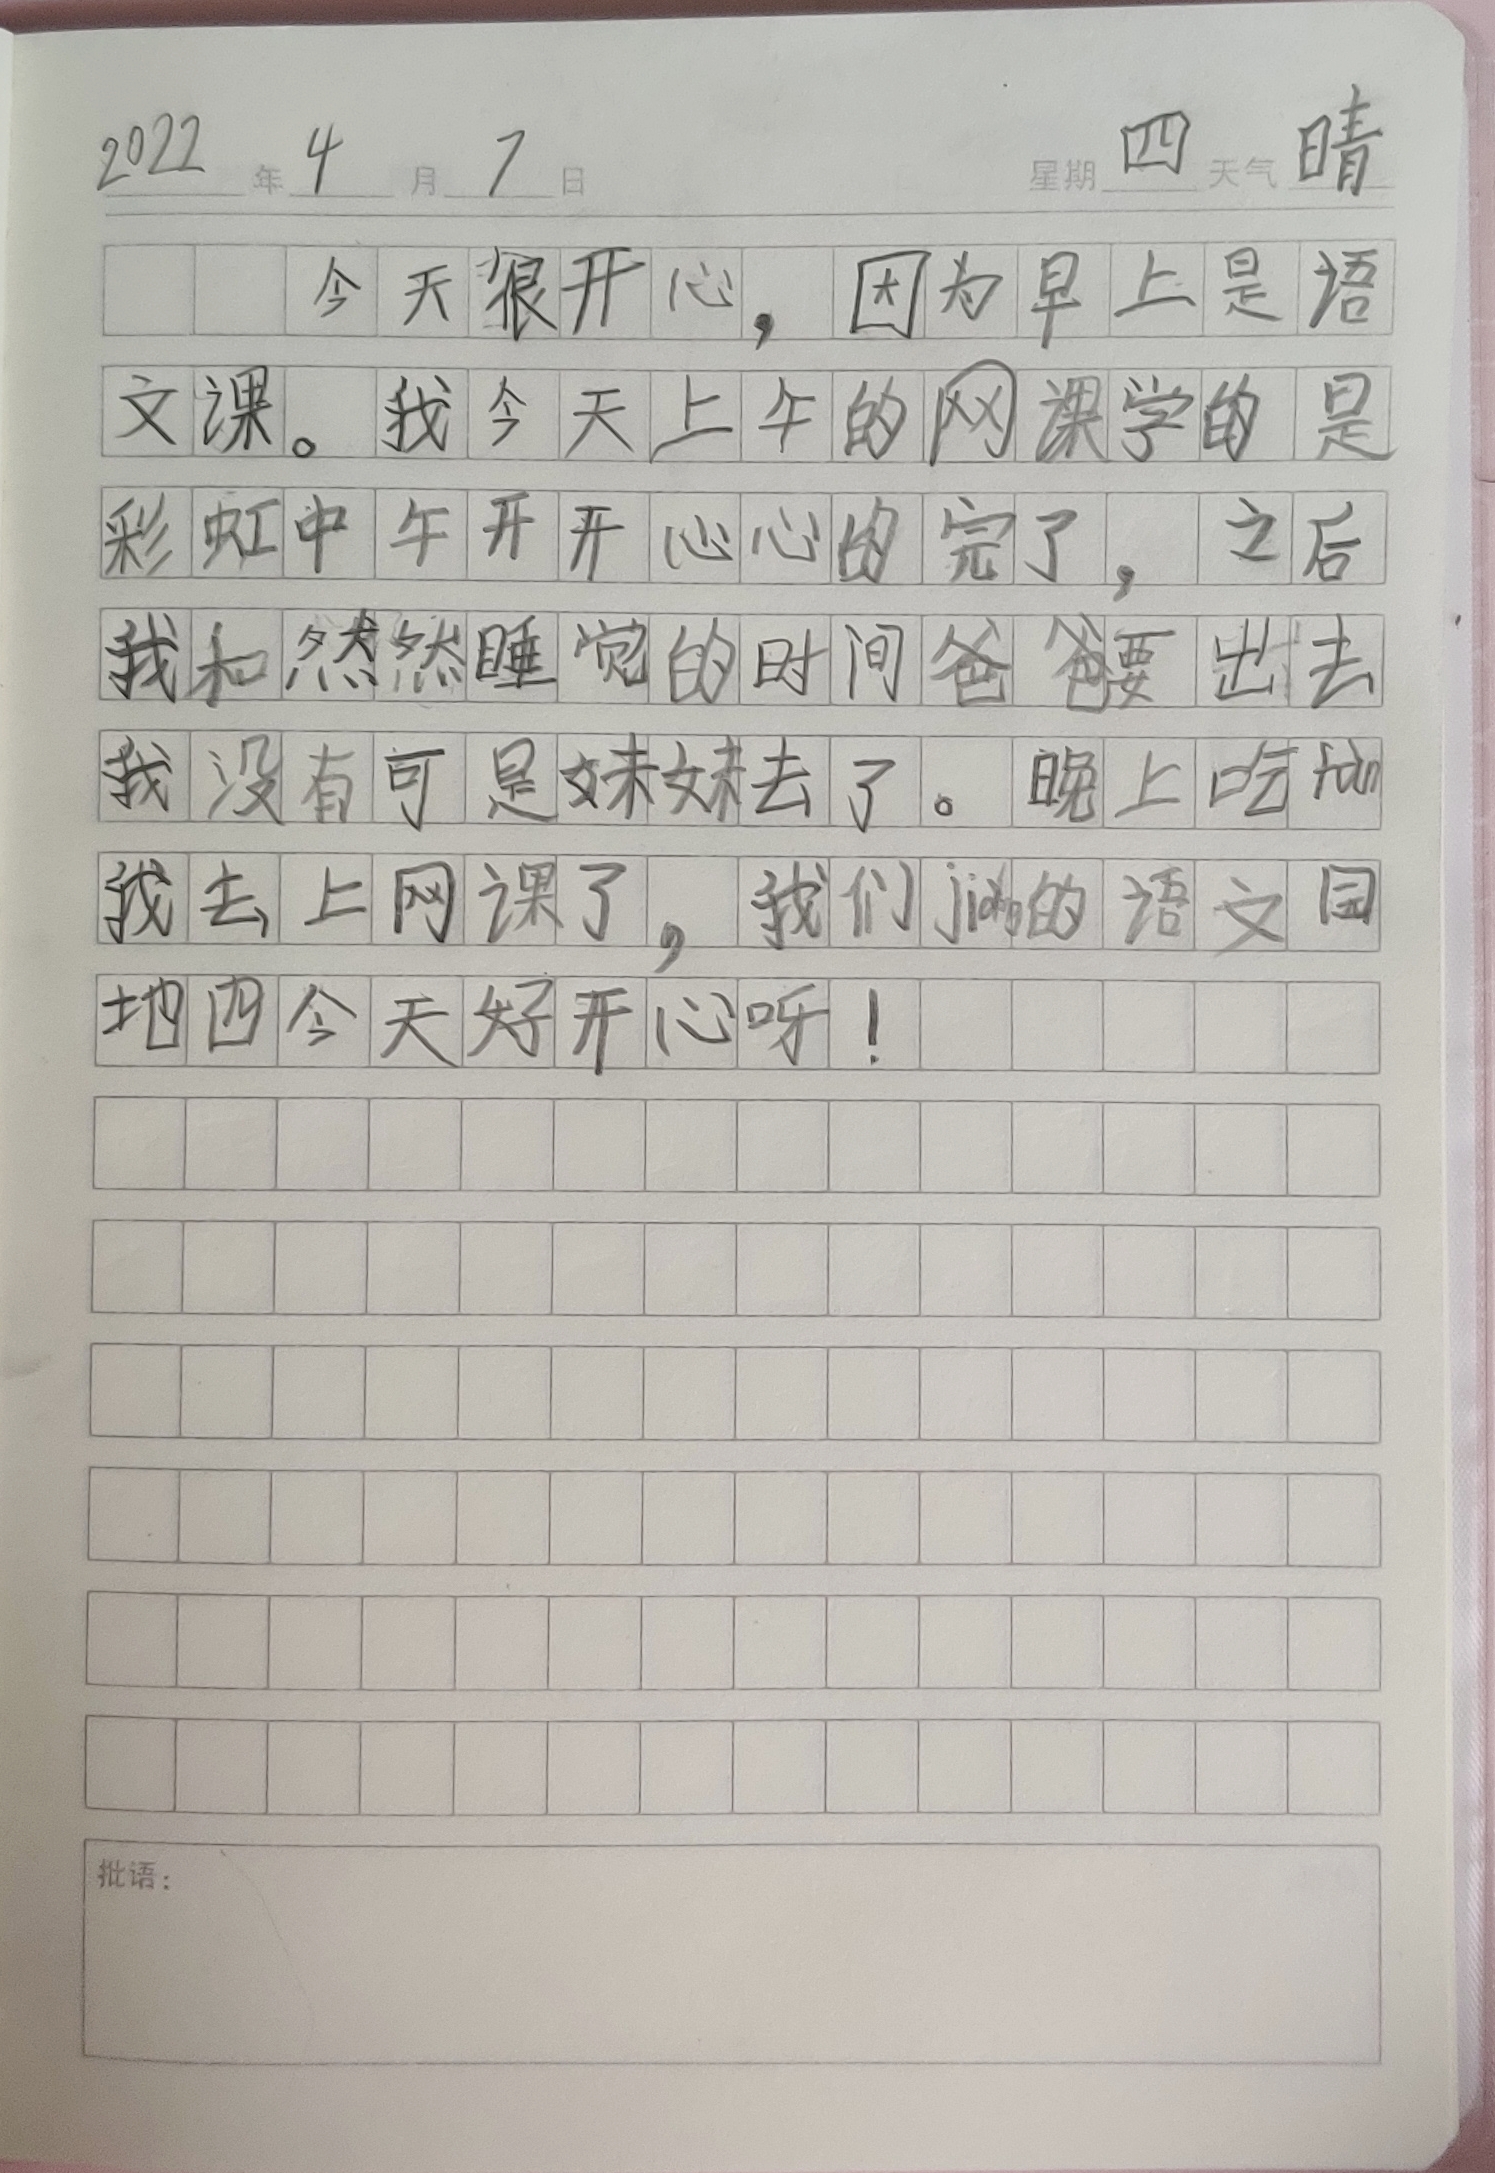 2022年4月7日 星期四天气晴
今天很开心，因为早上是语
文课。我今天上午的网课学的是
彩虹中午开开心心的完了，之后
我和然然睡觉的时间爸爸要出去
我没有可是妹妹去了。晚上吃fàn
我去上网课了，我们jiǎng的语文园
地四今天好开心呀！
批语：